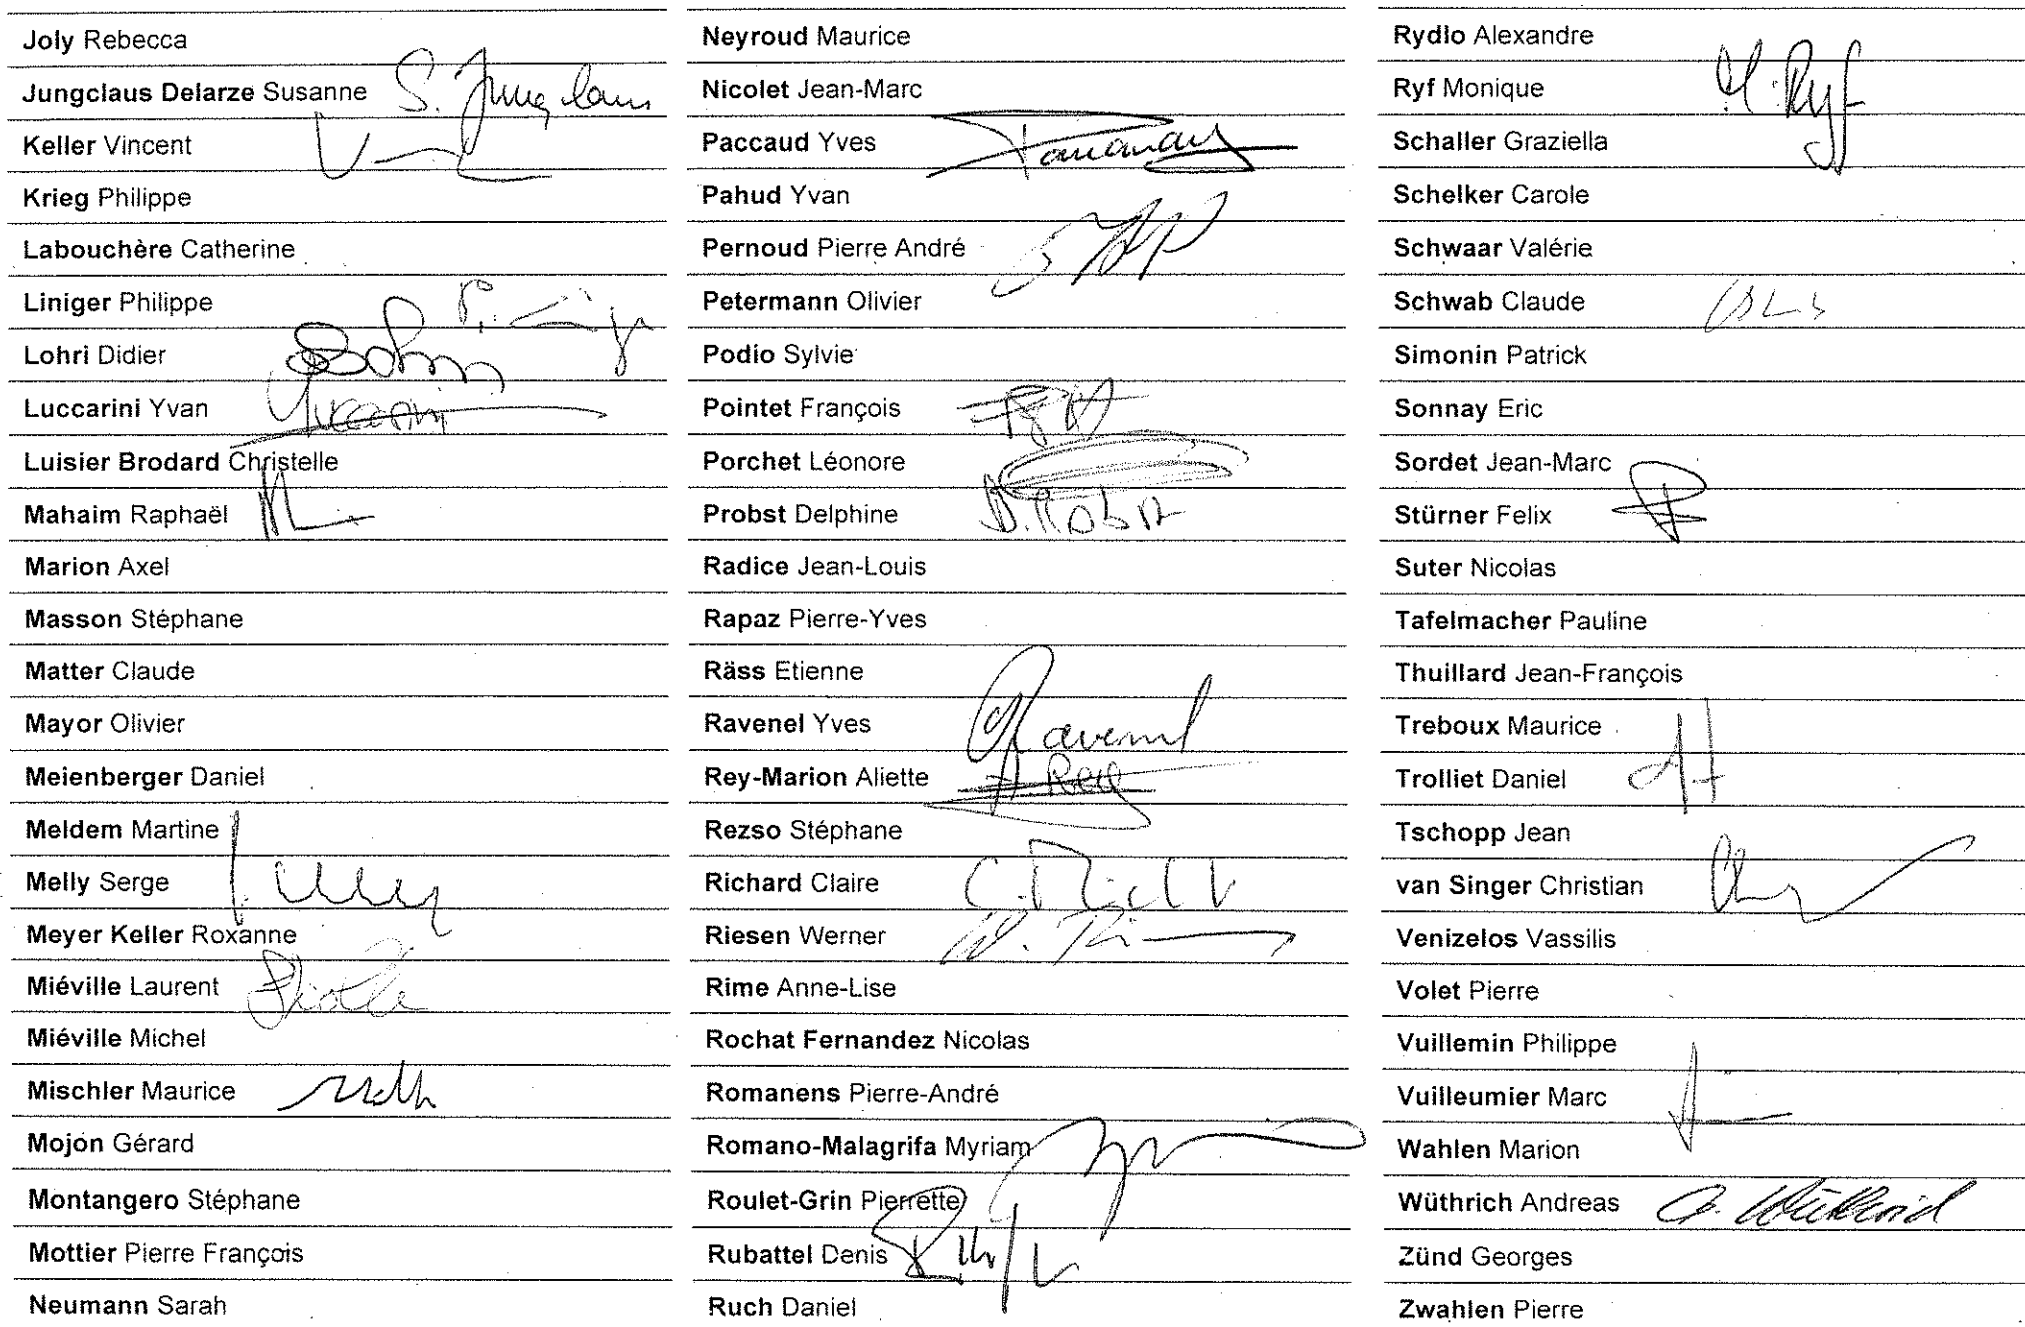 Joly Rebecca
Jungclaus Delarze Susanne S. Jungclaus
Keller Vincent
Krieg Philippe
Labouchère Catherine
Liniger Philippe
Lohri Didier
Luccarini Yvan Luccarini
Luisier Brodard Christelle
Mahaim Raphaël
Marion Axel
Masson Stéphane
Matter Claude
Mayor Olivier
Meienberger Daniel
Meldem Martine
Melly Serge
Meyer Keller Roxanne
Miéville Laurent
Miéville Michel
Mischler Maurice
Mojon Gérard
Montangero Stéphane
Mottier Pierre François
Neumann Sarah
Neyroud Maurice
Nicolet Jean-Marc
Paccaud Yves
Pahud Yvan
Pernoud Pierre André
Petermann Olivier
Podio Sylvie
Pointet François
Porchet Léonore
Probst Delphine D. Probst
Radice Jean-Louis
Rapaz Pierre-Yves
Räss Etienne
Ravenel Yves Ravenel
Rey-Marion Aliette A Rey
Rezso Stéphane
Richard Claire
Riesen Werner
Rime Anne-Lise
Rochat Fernandez Nicolas
Romanens Pierre-André
Romano-Malagrifa Myriam
Roulet-Grin Pierrette
Rubattel Denis
Ruch Daniel
Rydlo Alexandre
Ryf Monique M. Ryf
Schaller Graziella
Schelker Carole
Schwaar Valérie
Schwab Claude
Simonin Patrick
Sonnay Eric
Sordet Jean-Marc
Stürner Felix
Suter Nicolas
Tafelmacher Pauline
Thuillard Jean-François
Treboux Maurice
Trolliet Daniel
Tschopp Jean
van Singer Christian
Venizelos Vassilis
Volet Pierre
Vuillemin Philippe
Vuilleumier Marc
Wahlen Marion
Wüthrich Andreas A. Wüthrich
Zünd Georges
Zwahlen Pierre